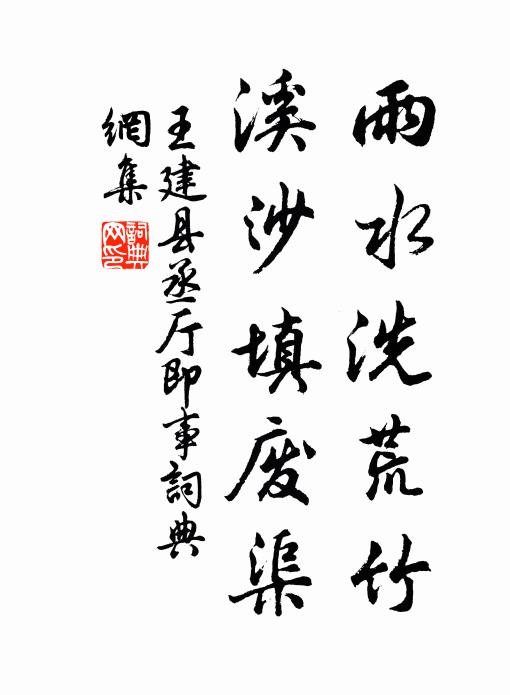 雨水洗荒竹
溪沙填废渠
王建县丞厅即事詞典
網集
詞典
网印